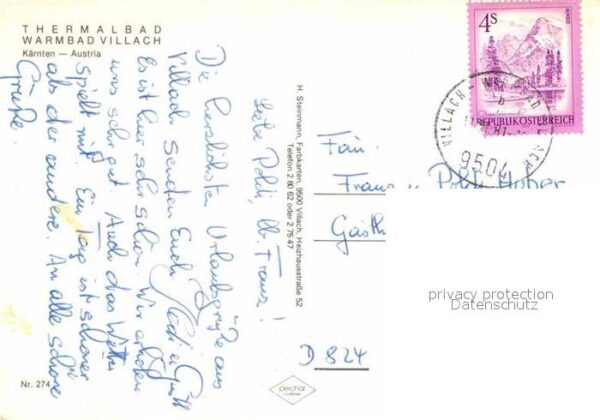 THERMALBAD
WARMBAD VILLACH
Kärnten — Austria
Liebe Poldi, lb. Franz!
Die herzlichste Urlaubsgrüße aus
Villach senden Euch
Es ist hier sehr schön. Wir erholen
uns sehr gut. Auch das Wetter
spielt mit. Ein Tag ist schöner
als der andere. An alle schöne
Grüße.
H. Steinmann, Farbkarten, 9500 Villach, Heizhausstraße 52
Telefon 2 60 62 oder 2 75 47
4S
REPUBLIK ÖSTERREICH
VILLACH
9504
Fam.
Franz Poldi Huber
Gasth
privacy protection
Datenschutz
D 824
Nr. 274